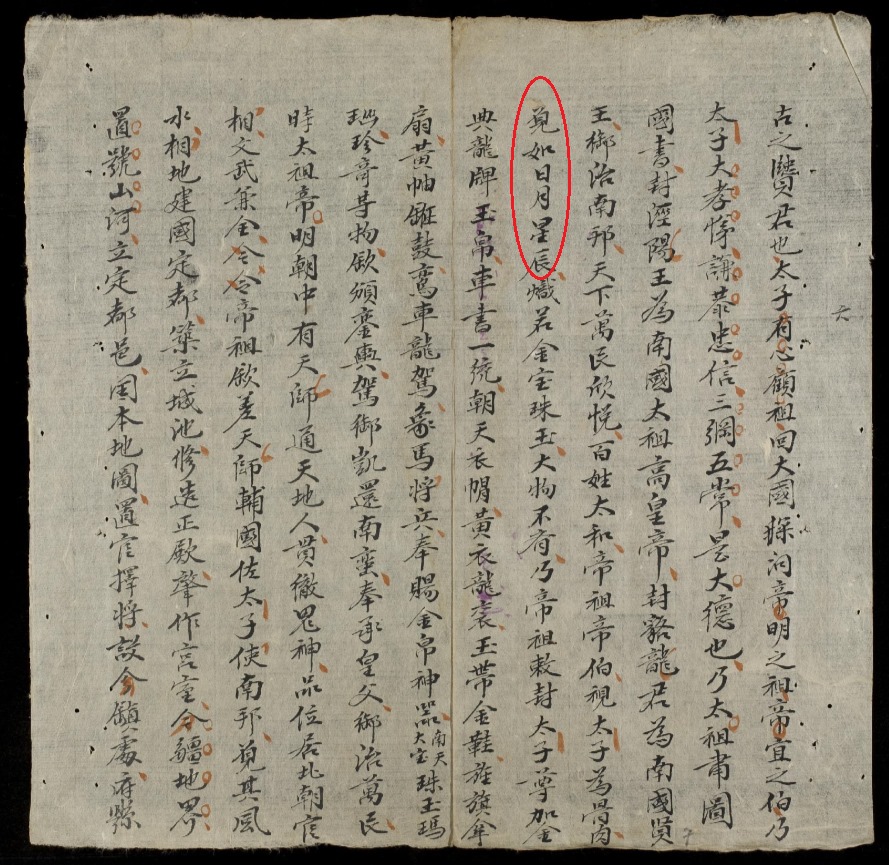 古之賢君也太子有心顧祖回大國探问帝明之祖帝宜之伯乃
太子大孝悌謙恭忠信三綱五常是大德也乃太祖肅圖
國書封涇陽王為南國太祖高皇帝封貉龍君為南國賢
王御治南邦天下萬民欣悅百姓太和帝祖帝伯視太子為骨肉
覓如日月星辰熾若金宝珠玉大物不有乃帝祖敕封太子尊加金
典龍牌玉帛車書一統朝天衣帽黃衣龍袞玉帶金鞋旌旗傘
扇黃帕鉦鼓鸞車龍駕象馬将兵奉賜金帛神器南天大宝珠玉瑪
珍奇等物欽頒鑾輿駕御凱還南蛮奉承皇父御治萬民
時太祖帝明朝中有天師通天地人貫徹鬼神品位居北朝官
相文武兼全令帝祖欽差天師輔國佐太子使南邦覓其風
水相地建國定都築立城池修造正殿肇作宮室分疆地界
置號山河立定都邑因本地圖置官擇将設令鎮處府縣
六